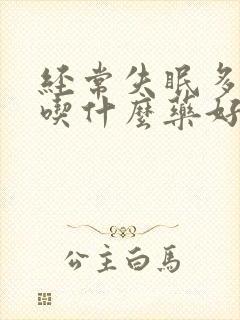 經常失眠多
喫什麼藥好
公主白馬